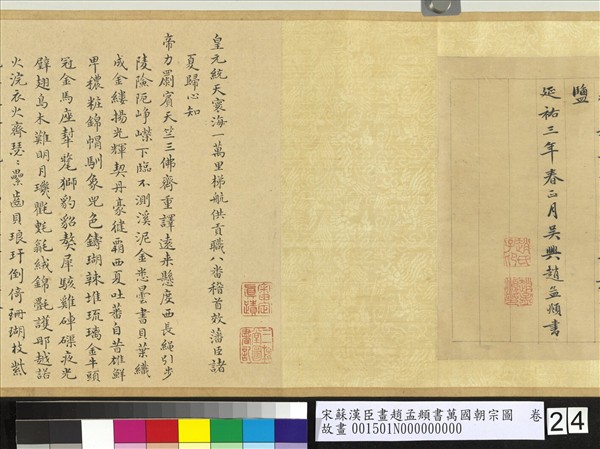 盬
延祐三年春正月吳興趙孟頫書
皇元統天寰海一萬里梯航供貢職八番稽首效藩臣諸
夏歸心知
帝力罽賓天竺三佛齊重譯遠来懸度西長繩引步
陵險阨崢嶸下臨不測溪泥金悉曇書貝葉織
成金縷揚光輝契丹豪健霸西夏吐蕃自昔雄鮮
卑穠粧錦帽馴象兕色鑄瑚辣堆琉璃金牛頭
冠金馬座犛麾獅豹貂獒犀駭雞硨磲夜光
璧翅烏木難明月璣氍毹毾㲪絨錦罽護那越諾
火浣衣火齊瑟瑟纍齒貝琅玕倒倚珊瑚枝紫
宋蘇漢臣畫趙孟頫書萬國朝宗圖 卷
故畫 001501N000000000
24